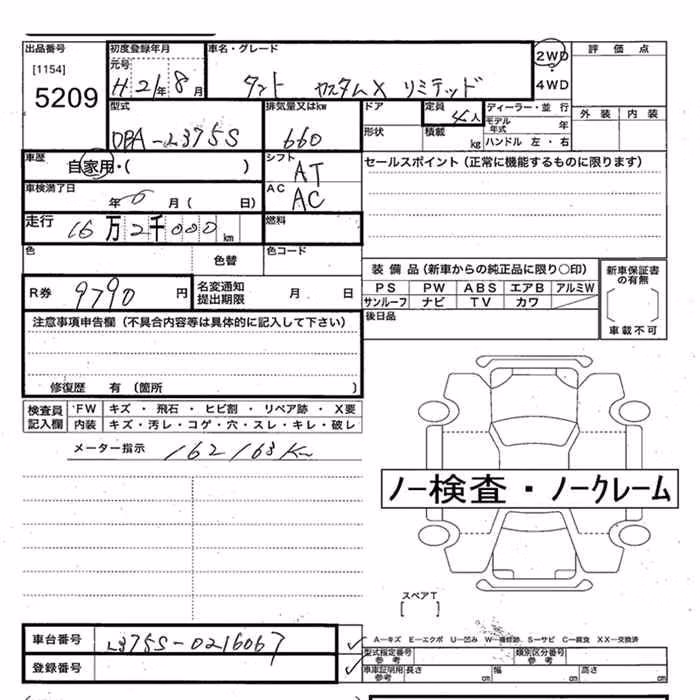 出品番号 初度登録年月 車名・グレード 評価点
[1154] 元号 2WD
5209 H 21年 8月 タント カスタムX リミテッド 4WD
型式 排気量又はkw ドア 定員 ディーラー・並行 外装 内装
4人 モデル年式 年
DBA-L375S 660 形状 積載 kg ハンドル 左・右
車歴 シフト セールスポイント(正常に機能するものに限ります)
自家用・( ) AT
車検満了日 AC
年 月( 日) AC
走行 16万2千000km 燃料
色 色替 色コード
装備品(新車からの純正品に限り○印) 新車保証書の有無
PS PW ABS エアB アルミW
R券 9790円 名変通知提出期限 月 日 サンルーフ ナビ TV カワ
後日品 車載不可
注意事項申告欄(不具合内容等は具体的に記入して下さい)
修復歴 有(箇所 )
検査員記入欄 FW キズ・飛石・ヒビ割・リペア跡・X要
内装 キズ・汚レ・コゲ・穴・スレ・キレ・破レ
メーター指示 162163Km
ノー検査・ノークレーム
スペアT
[ ]
車台番号 L375S-0216067 A-キズ E-エクボ U-凹ミ W-補修跡 S-サビ C-腐食 XX-交換済
型式指定番号参考 類別区分番号参考
登録番号 車庫証明用参考 長さ cm 幅 cm 高さ cm